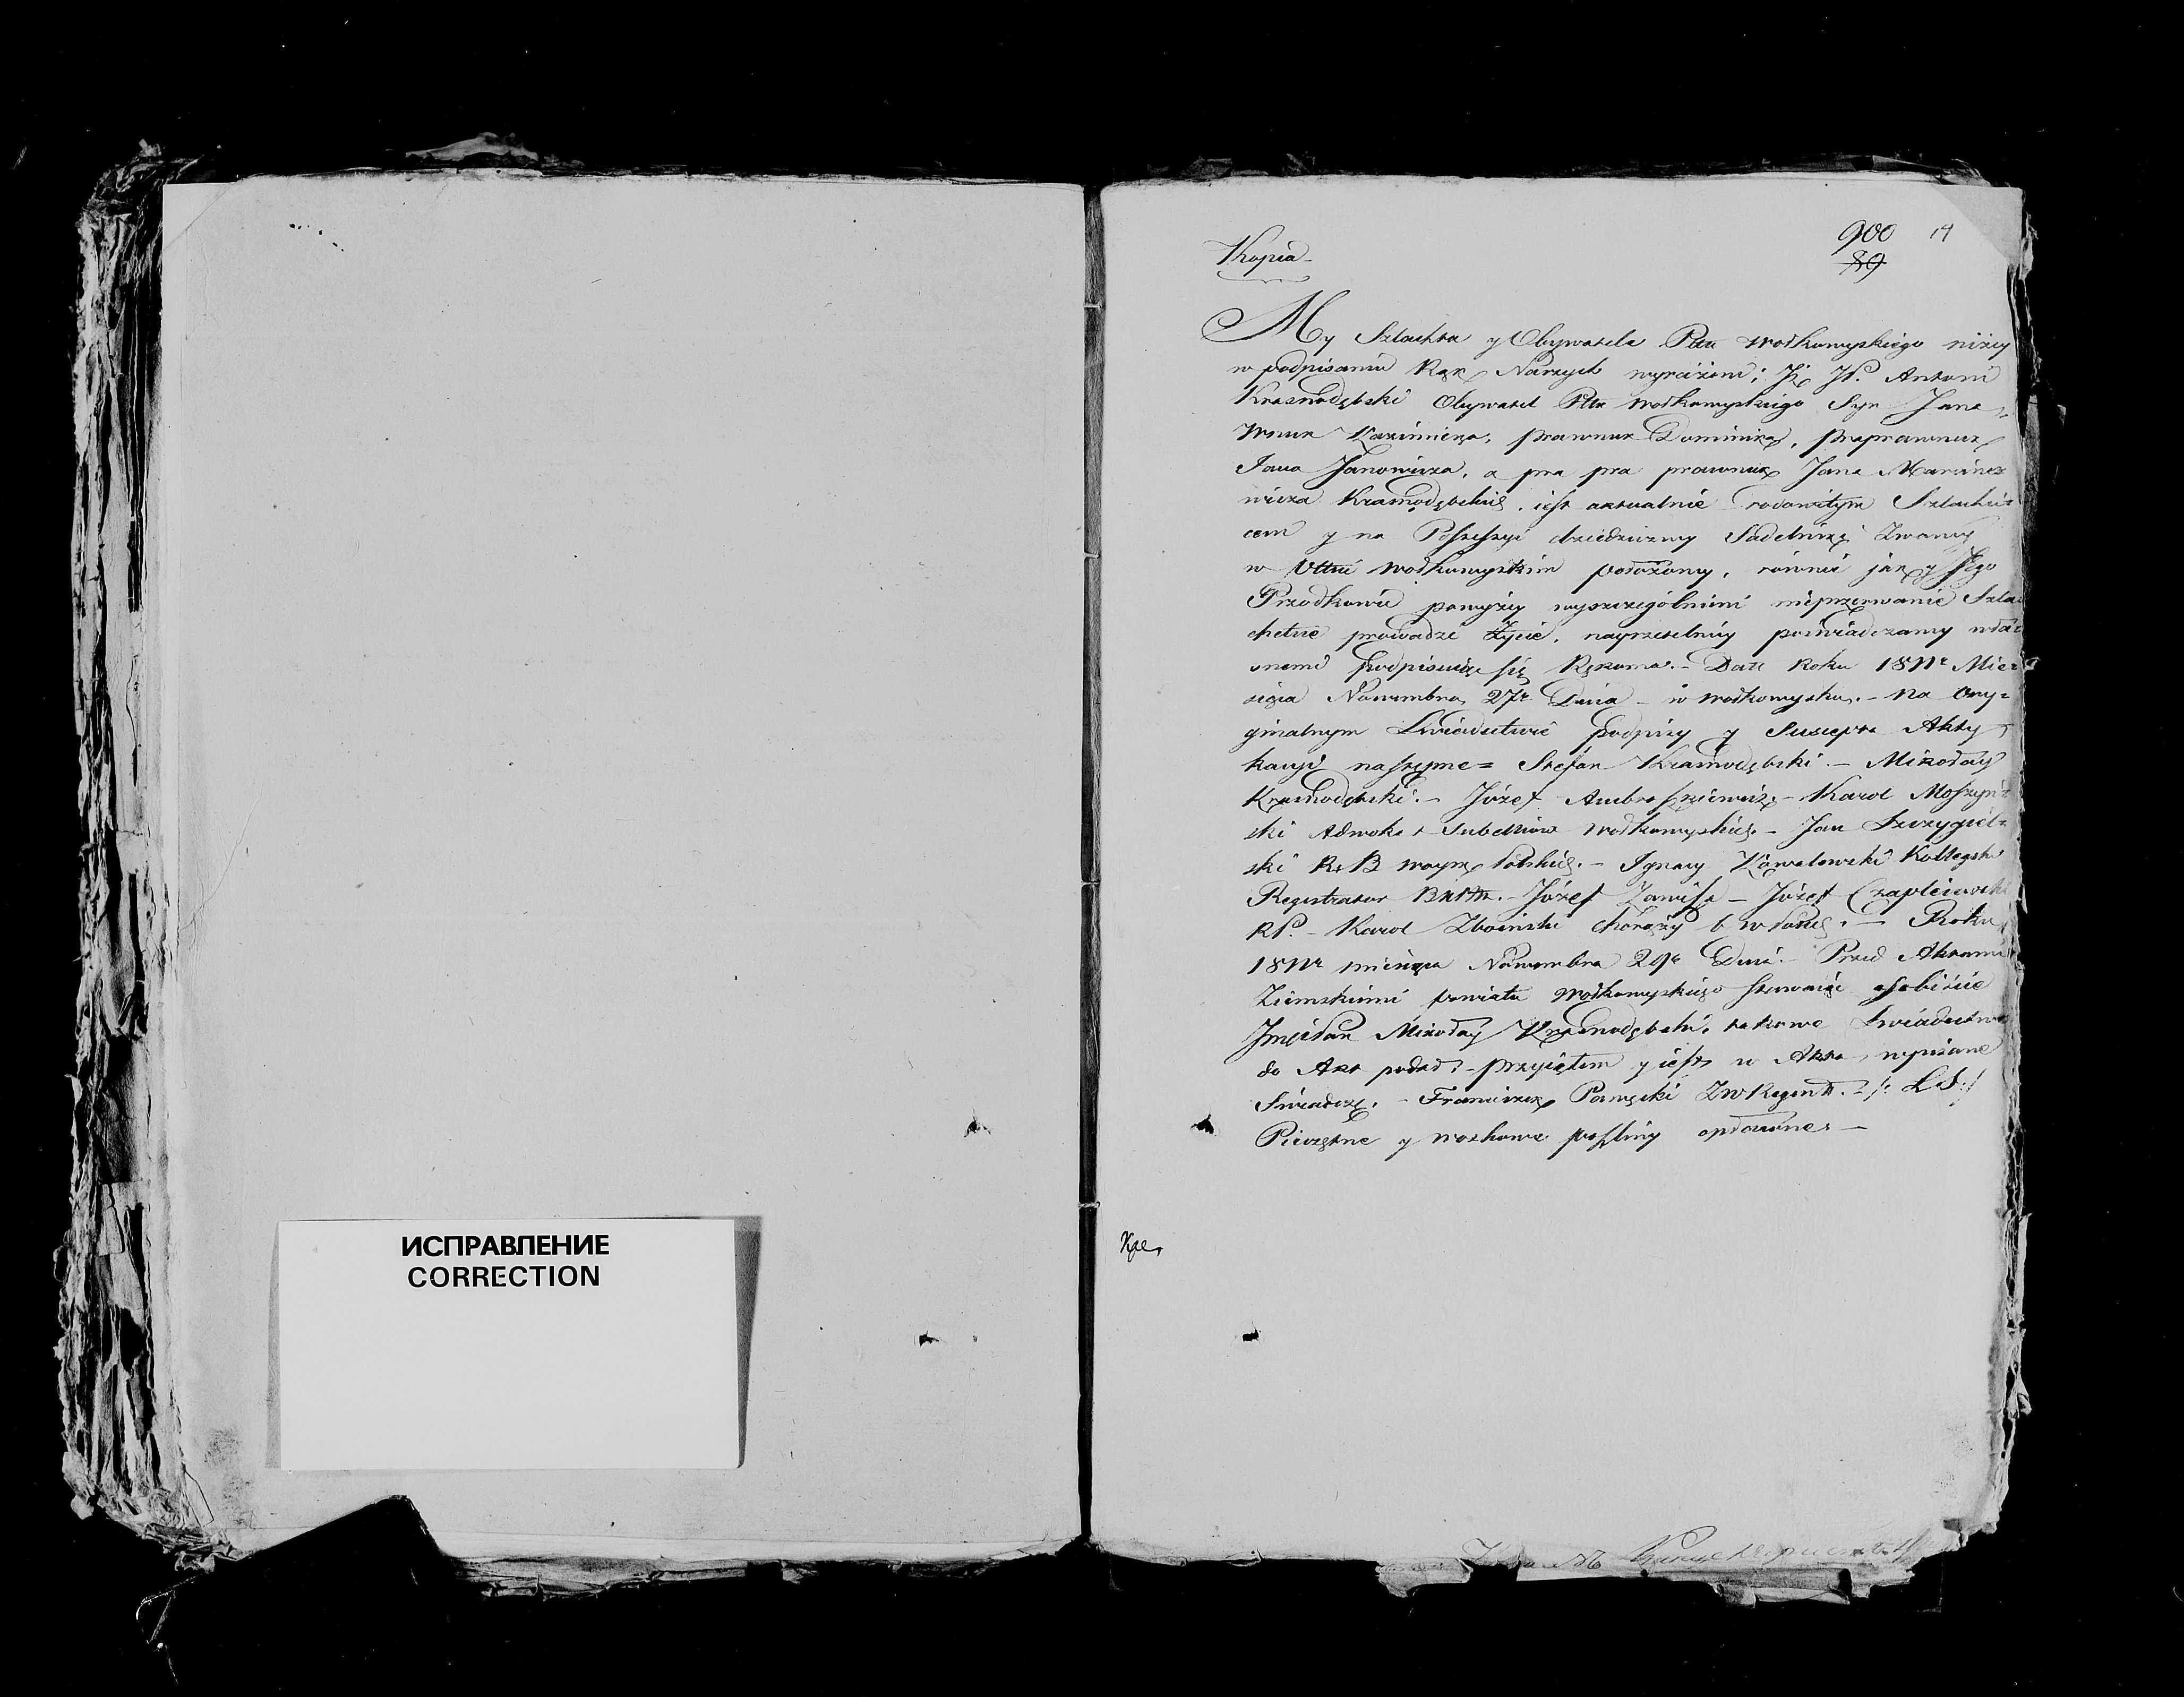 ИСПРАВЛЕНИЕ
CORRECTION
900 14
89
Kopia
My Szlachta y Obywatele Pttu Wołkowyskiego niżey
w podpisaniu Rąk Naszych wyrażeni; Iż JP. Antoni
Krasnodębski Obywatel Pttu Wołkowyskiego Syn Jana,
Wnuk Kazimierza, prawnuk Dominika, praprawnuk
Jana Janowicza, a pra pra prawnuk Jana Marcino
wicza Krasnodębskich, iest aktualnie rodowitym Szlachcic
cem y na Possessyi dziedziczney Sadelniki Zwaney
w Pttcie Wołkowyskim położoney, równie jak y Jego
Przodkowie powyżey wyszczególnieni nieprzerwanie Szla
chetne prowadzi Życie, nayrzetelniey poświadczamy włas
snemi podpisuiąc się Rękoma. - Dat Roku 1811 Mie=
siąca Nowembra 27 Dnia - w Wołkowysku. - Na Ory=
ginalnym Świadectwie podpisy y Suscepta Akty
kacyi następne = Stefan Krasnodębski. - Mikołay
Krasnodębski. - Józef Ambroszkiewicz. - Karol Moszyń
ski Adwokat Subselliow Wołkowyskich. - Jan Szczygiel=
ski R. B woysk Polskich. - Ignacy Kowalewski Kollegski
Registrator - Józef Zawisza - Józef Czapleiewski
RP. - Karol Zboinski Chorąży b w Polskich. - Roku
1811 miesiąca Nowembra 29 Dnia. - Przed Aktami
Ziemskiemi powiatu Wołkowyskiego stawaiąc osobiście
Jmć Pan Mikołay Krasnodębski, takowe Świadectwo
do Akt podał - przyiętym y iest w Akta wpisane
Świadczę. - Franciszek Ziemski Regent. - /: LS :/
Pieczętne y woskowe poszliny opłacone. -